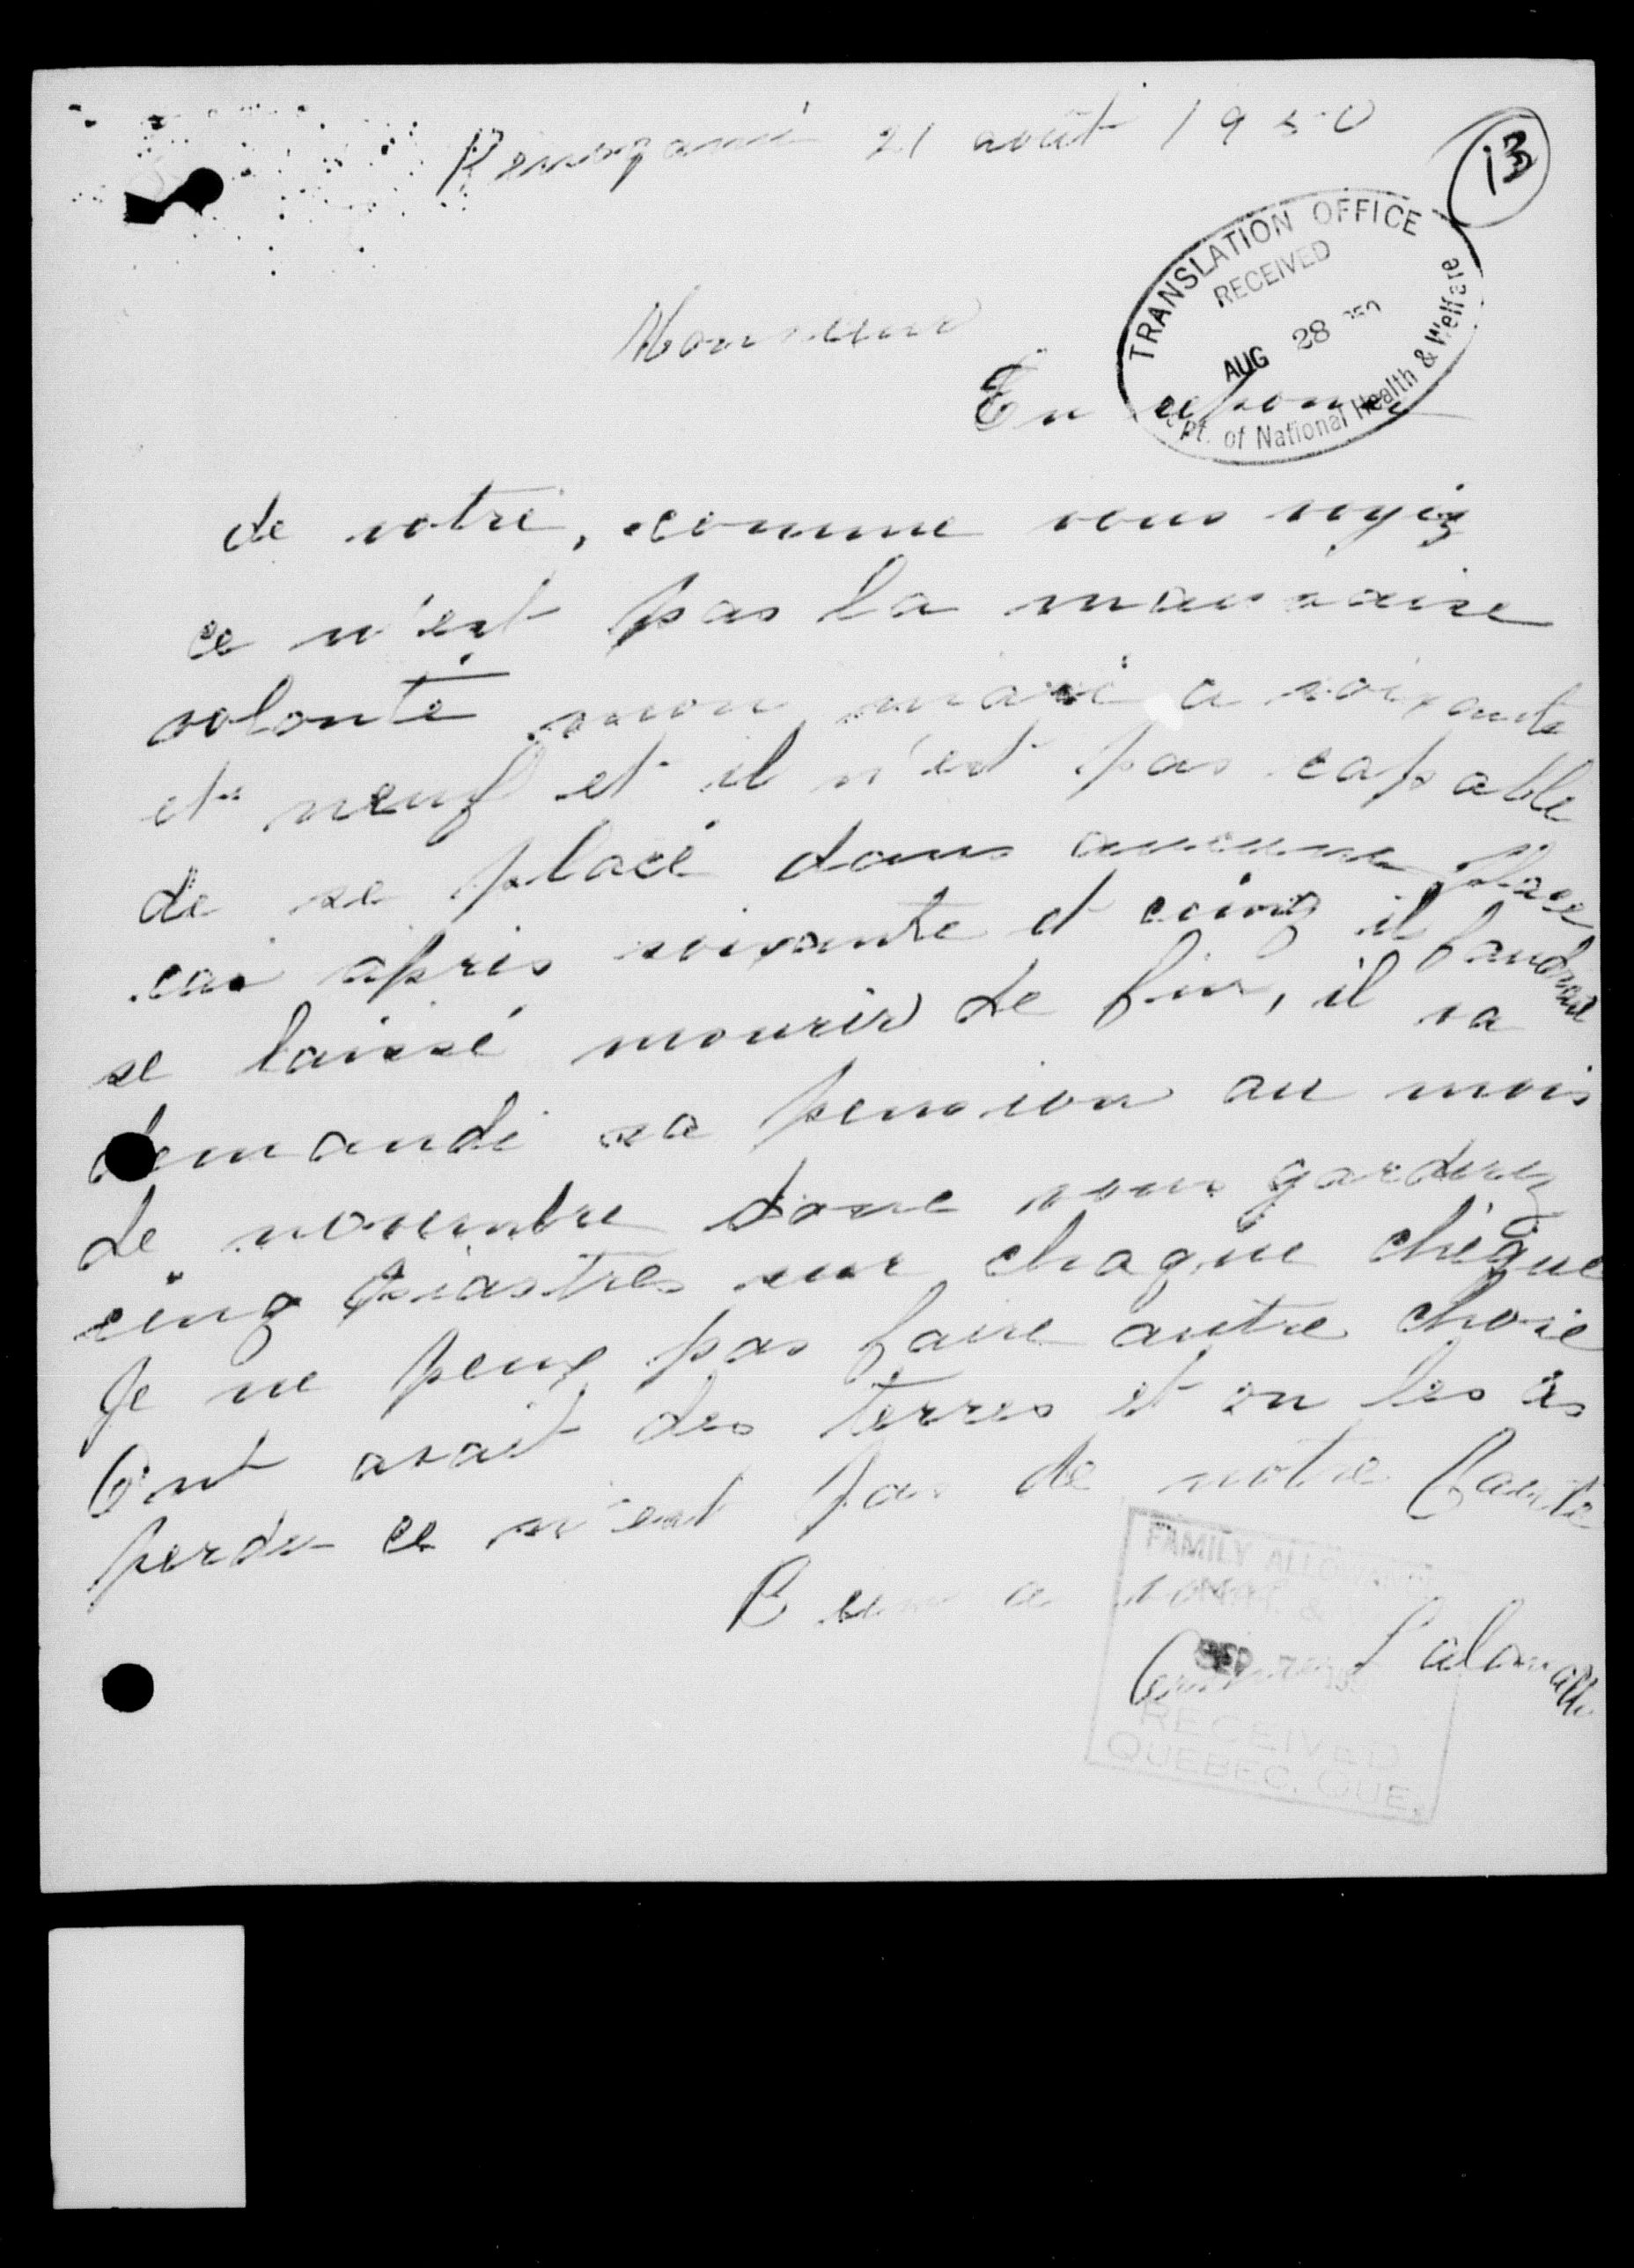 21 août 1950
13
TRANSLATION OFFICE
RECEIVED
AUG 28
Dept. of National Health & Welfare
Monsieur
En reponse
de votre, comme vous voyiz
ce n'est pas la mauvaise
volonté mon mari a soixante
et neuf et il n'est pas capable
de se placé dans aucune place
car après soixante et cinq il faudrait
se laissé mourir de fin, il va
demandé sa pension au mois
de novembre donc vous garderez
cinq piastres sur chaque chèque
Je ne peux pas faire autre chose
Ont avait des terres et on les as
perdu ce n'est pas de notre faute
Bien a vous
Lalonde
FAMILY ALLOWANCE
SEP
RECEIVED
QUEBEC, QUE.